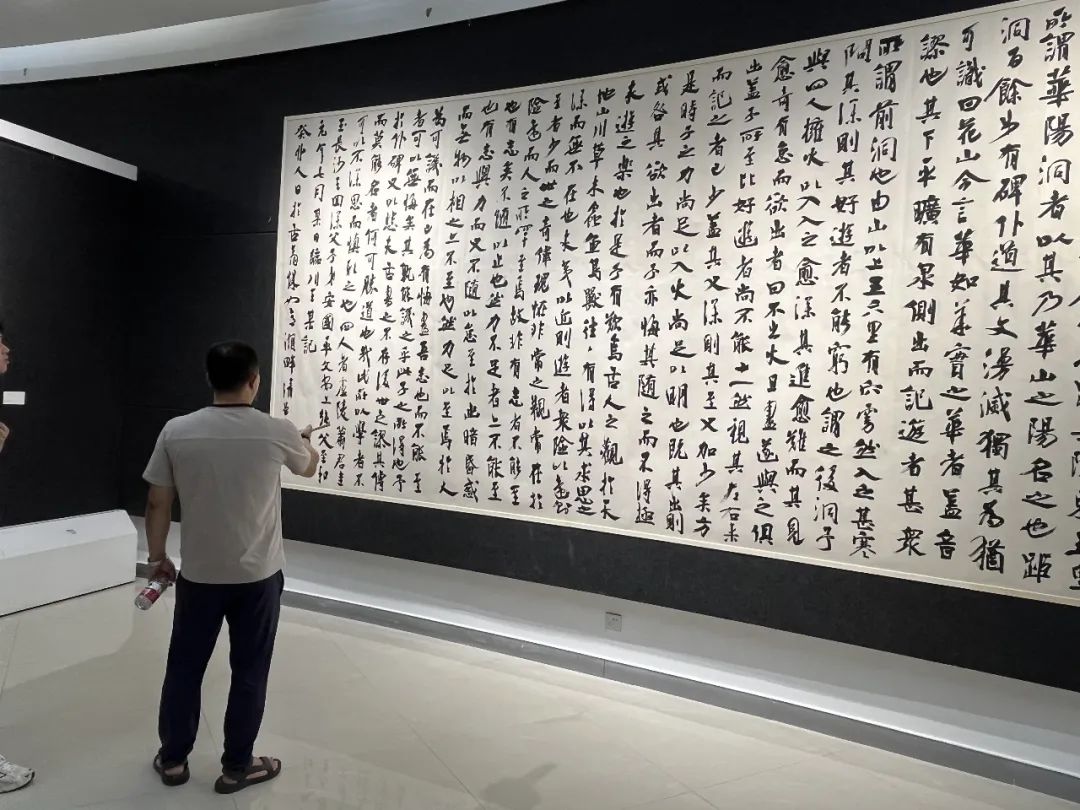 所謂華陽洞者以其乃華山之陽名之也距
洞百餘步有碑仆道其文漫滅獨其爲猶
可識曰花山今言華如華實之華者蓋音
謬也其下平曠有泉側出而記遊者甚衆
所謂前洞也由山以上五六里有穴窈然入之甚寒
問其深則其好遊者不能窮也謂之後洞予
與四人擁火以入入之愈深其進愈難而其見
愈奇有怠而欲出者曰不出火且盡遂與之俱
出蓋予所至比好遊者尚不能十一然視其左右來
而記之者已少蓋其又深則其至又加少矣方
是時予之力尚足以入火尚足以明也既其出則
或咎其欲出者而予亦悔其隨之而不得極
夫遊之樂也於是予有歎焉古人之觀於天
地山川草木蟲魚鳥獸往往有得以其求思之
深而無不在也夫夷以近則遊者衆險以遠則
至者少而世之奇偉瑰怪非常之觀常在於
險遠而人之所罕至焉故非有志者不能至
也有志矣不隨以止也然力不足者亦不能至
也有志與力而又不隨以怠至於幽暗昏惑
而無物以相之亦不至也然力足以至焉於人
爲可譏而在己爲有悔盡吾志也而不能至
者可以無悔矣其孰能譏之乎此予之所得也予
於仆碑又以悲夫古書之不存後世之謬其傳
而莫能名者何可勝道也哉此所以學者不
可以不深思而慎取之也四人者廬陵蕭君圭
玉長樂王回深父予弟安國平父安上純父至和
元年七月某日臨川王某記